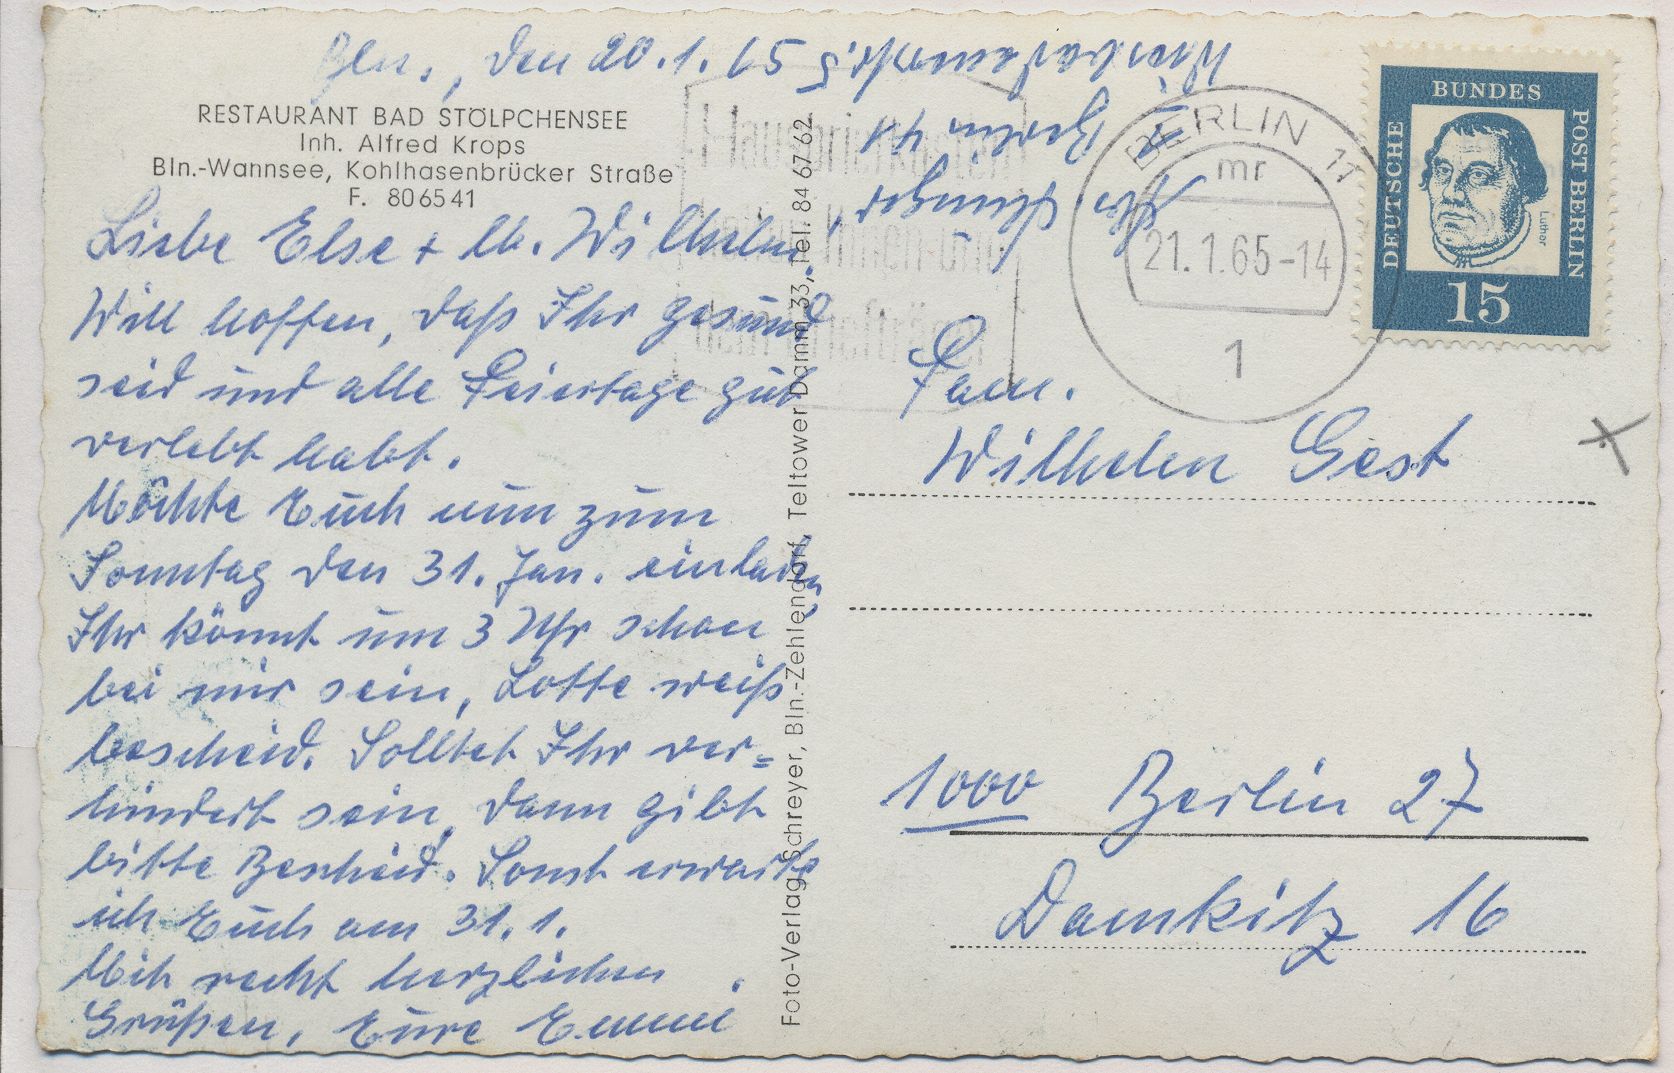 Bln., den 20.1.65
RESTAURANT BAD STÖLPCHENSEE
Inh. Alfred Krops
Bln.-Wannsee, Kohlhasenbrücker Straße
F. 80 65 41
Liebe Else + lb. Wilhelm!
Will hoffen, daß Ihr gesund
seid und alle Feiertage gut
verlebt habt.
Möchte Euch nun zum
Sonntag den 31. Jan. einladen
Ihr könnt um 3 Uhr schon
bei mir sein, Lotte weiß
bescheid. Solltet Ihr ver=
hindert sein, dann gibt
bitte Bescheid. Sonst erwarte
ich Euch am 31.1.
Mit recht herzlichen
Grüßen, Eure Emmi
Foto-Verlag Schreyer, Bln.-Zehlendorf, Teltower Damm 33, Tel.: 84 67 62
Abs.
1 Berlin 41
Hausbriefkasten
dem Briefträger
BERLIN 11
mr
21.1.65-14
1
DEUTSCHE
BUNDES
POST BERLIN
Luther
15
Fam.
Wilhelm Gest
1000 Berlin 27
Damkitz 16